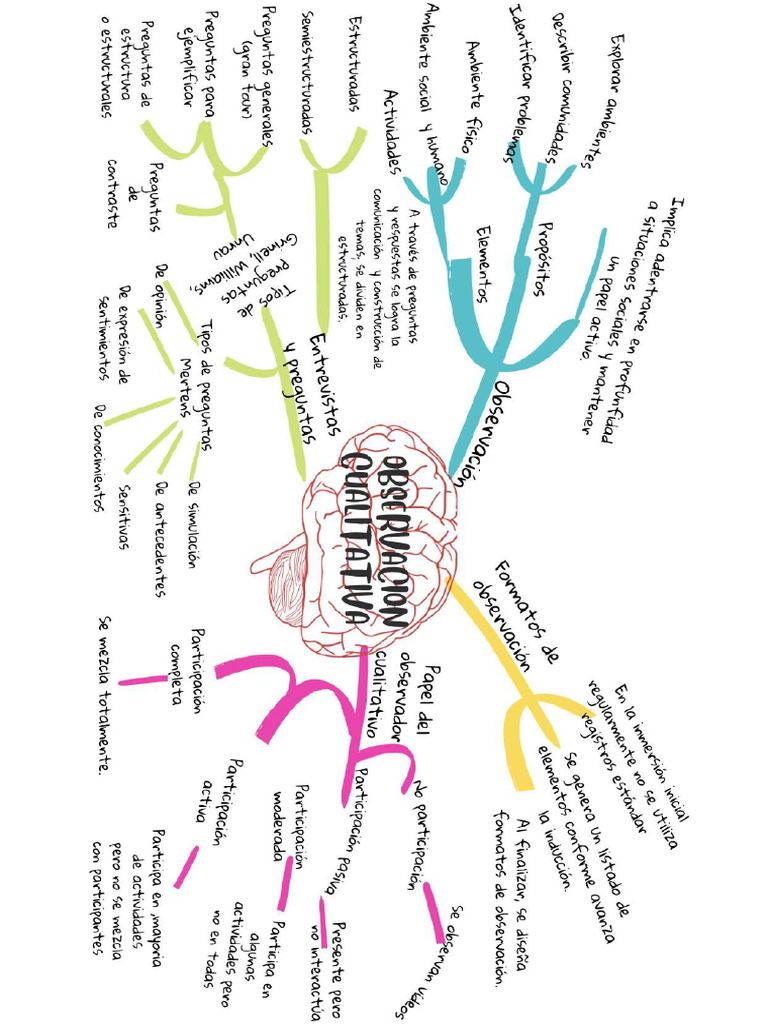 OBSERVACION
CUALITATIVA
Observación
Implica adentrarse en profunfidad
a situaciones sociales y mantener
un papel activo.
Propósitos
Explorar ambientes
Describir comunidades
Identificar problemas
Elementos
Ambiente físico
Ambiente social y humano
Actividades
Entrevistas
y preguntas
A través de preguntas
y respuestas se logra la
comunicación y construcción de
temas, se dividen en
estructuradas,
Estructuradas
Semiestructuradas
Tipos de
preguntas
Grinell, Williams,
Unrau
Preguntas generales
(gran tour)
Preguntas para
ejemplificar
Preguntas de
estructura
o estructurales
Preguntas
de
contraste
Tipos de preguntas
Mertens
De opinión
De expresión de
sentimientos
De conocimientos
Sensitivas
De antecedentes
De simulación
Formatos de
observación
En la inmersión inicial
regularmente no se utiliza
registros estándar
Se genera un listado de
elementos conforme avanza
la inducción.
Al finalizar, se diseña
formatos de observación.
Papel del
observador
cualitativo
No participación
Se observan videos
Participación pasiva
Presente pero
no interactúa
Participación
moderada
Participa en
algunas
actividades pero
no en todas
Participación
activa
Participa en ,mayoria
de actividades
pero no se mezcla
con participantes
Participación
completa
Se mezcla totalmente.